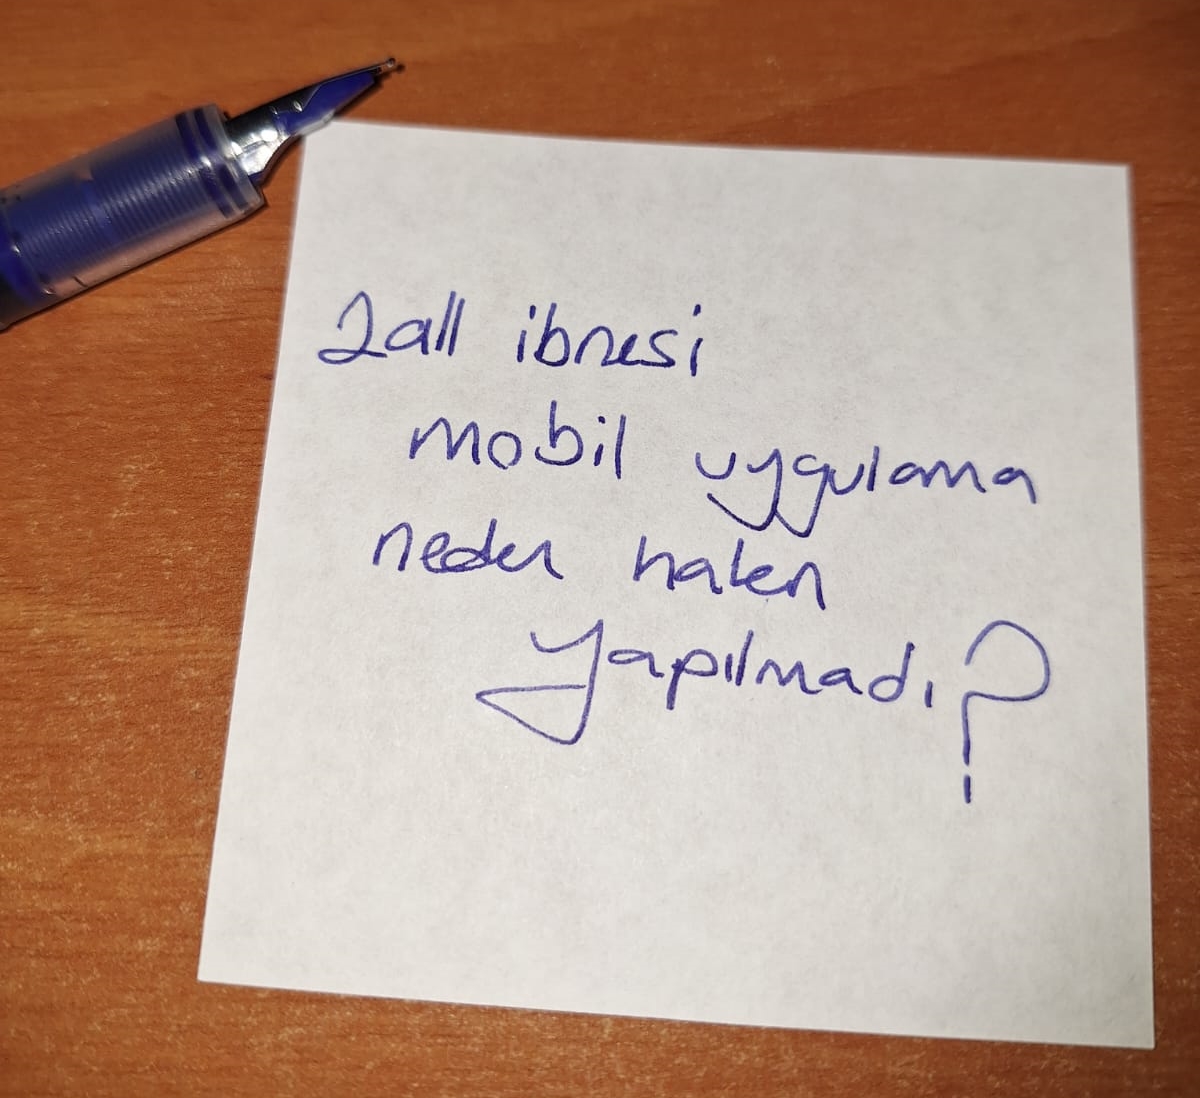 2all ibnesi
mobil uygulama
neden halen
yapılmadı?